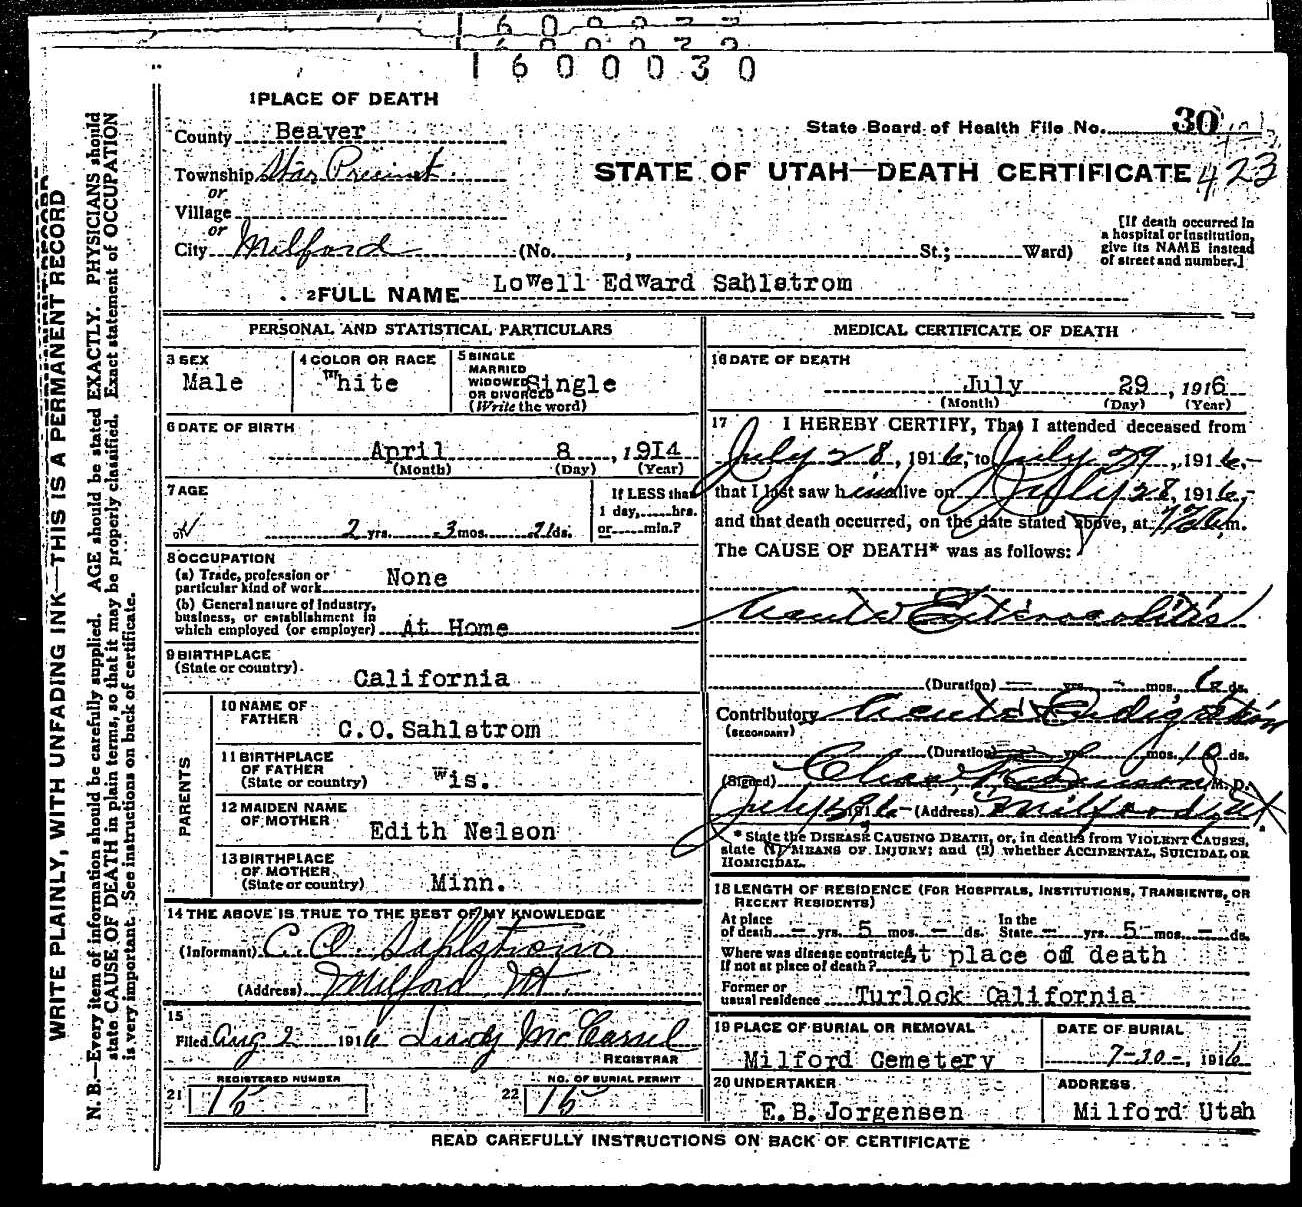 1600030
1 PLACE OF DEATH
State Board of Health File No. 30
County Beaver
Township Star Precinct
STATE OF UTAH—DEATH CERTIFICATE 423
or
Village
or
City Milford (No. , St.; Ward)
[If death occurred in a hospital or institution, give its NAME instead of street and number.]
2 FULL NAME Lowell Edward Sahlstrom
PERSONAL AND STATISTICAL PARTICULARS
3 SEX
Male
4 COLOR OR RACE
White
5 SINGLE
MARRIED
WIDOWED
OR DIVORCED
(Write the word)
Single
6 DATE OF BIRTH
April 8, 1914
(Month) (Day) (Year)
7 AGE
2 yrs. 3 mos. 21 ds.
If LESS than
1 day, hrs.
or min.?
8 OCCUPATION
(a) Trade, profession or
particular kind of work None
(b) General nature of industry,
business, or establishment in
which employed (or employer) At Home
9 BIRTHPLACE
(State or country)
California
PARENTS
10 NAME OF
FATHER
C.O. Sahlstrom
11 BIRTHPLACE
OF FATHER
(State or country) Wis.
12 MAIDEN NAME
OF MOTHER
Edith Nelson
13 BIRTHPLACE
OF MOTHER
(State or country) Minn.
14 THE ABOVE IS TRUE TO THE BEST OF MY KNOWLEDGE
(Informant) C. O. Sahlstrom
(Address) Milford, Ut.
15
Filed Aug 2 1916
REGISTRAR
21 REGISTERED NUMBER
15
22 NO. OF BURIAL PERMIT
15
MEDICAL CERTIFICATE OF DEATH
16 DATE OF DEATH
July 29, 1916
(Month) (Day) (Year)
17 I HEREBY CERTIFY, That I attended deceased from
July 28, 1916, to July 29, 1916,
that I last saw him alive on July 28, 1916,
and that death occurred, on the date stated above, at m.
The CAUSE OF DEATH* was as follows:
Acute Enterocolitis
(Duration) — yrs. - mos. 6 ds.
Contributory Acute Indigestion
(SECONDARY)
(Duration) yrs. mos. 10 ds.
(Signed) M. D.
July 1916 (Address) Milford, Ut.
* State the DISEASE CAUSING DEATH, or, in deaths from VIOLENT CAUSES,
state (1) MEANS OF INJURY; and (2) whether ACCIDENTAL, SUICIDAL OR
HOMICIDAL.
18 LENGTH OF RESIDENCE (FOR HOSPITALS, INSTITUTIONS, TRANSIENTS, OR
RECENT RESIDENTS)
At place
of death — yrs. 5 mos. — ds.
In the
State — yrs. 5 mos. — ds.
Where was disease contracted
If not at place of death? At place of death
Former or
usual residence Turlock California
19 PLACE OF BURIAL OR REMOVAL
Milford Cemetery
DATE OF BURIAL
7-30-, 1916
20 UNDERTAKER
E.B. Jorgensen
ADDRESS
Milford Utah
READ CAREFULLY INSTRUCTIONS ON BACK OF CERTIFICATE
WRITE PLAINLY, WITH UNFADING INK—THIS IS A PERMANENT RECORD
N. B.—Every item of information should be carefully supplied. AGE should be stated EXACTLY. PHYSICIANS should
state CAUSE OF DEATH in plain terms, so that it may be properly classified. Exact statement of OCCUPATION
is very important. See instructions on back of certificate.